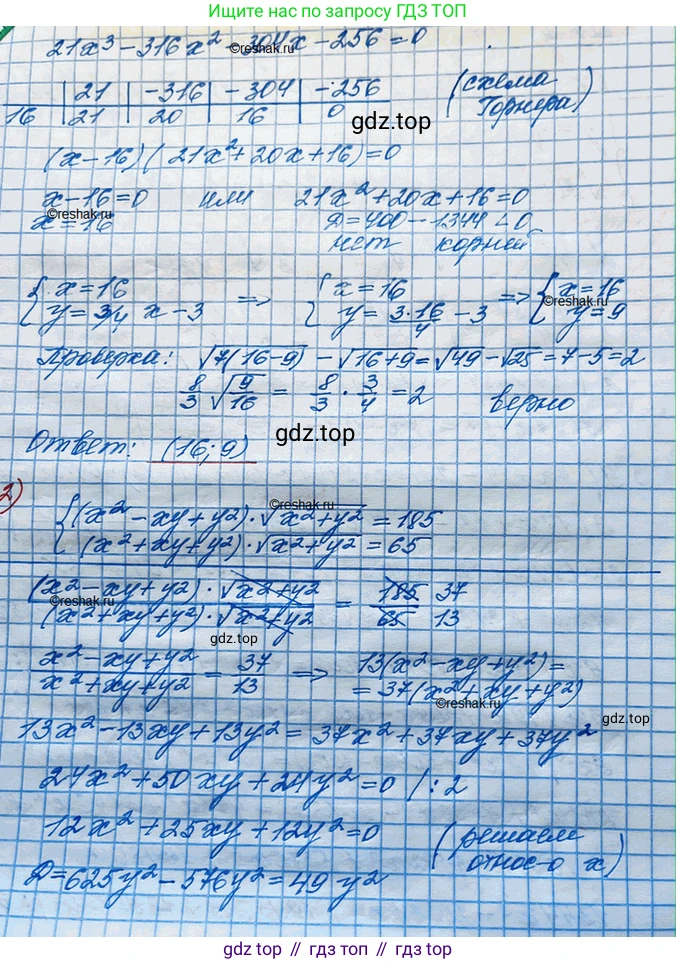 Ищите нас по запросу ГДЗ ТОП
21x³ - 316x² - 304x - 256 = 0
©reshak.ru
21 | -316 | -304 | -256
16 | 21 | 20 | 16 | 0
(схема Горнера)
gdz.top
(x-16)(21x²+20x+16)=0
x-16=0 или 21x²+20x+16=0
©reshak.ru
x=16 D=400-1344<0
нет корней
{x=16 => {x=16 => {x=16
©reshak.ru
y=3/4 x-3 y=3·16/4 -3 y=9
Проверка: √7(16-9) - √16+9 = √49 - √25 = 7-5=2
8/3 √9/16 = 8/3 · 3/4 = 2 верно
gdz.top
Ответ: (16; 9)
©reshak.ru
2) {(x²-xy+y²)·√x²+y² = 185
(x²+xy+y²)·√x²+y² = 65
(x²-xy+y²)·√x²+y² / (x²+xy+y²)·√x²+y² = 185/65 37/13
©reshak.ru
gdz.top
x²-xy+y² / x²+xy+y² = 37/13 => 13(x²-xy+y²)=
=37(x²+xy+y²)
©reshak.ru
13x²-13xy+13y²=37x²+37xy+37y²
gdz.top
24x²+50xy+24y²=0 |:2
12x²+25xy+12y²=0 (решаем
относ-о x)
D=625y²-576y²=49y²
gdz.top // гдз топ // gdz.top